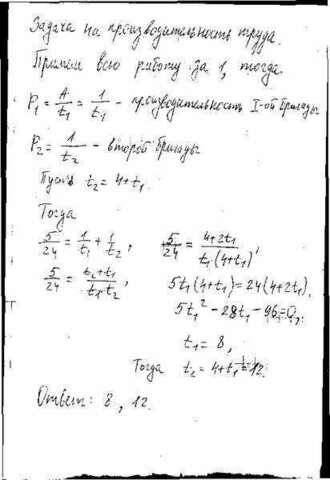 Задача на производительность труда.
Примем всю работу за 1, тогда
P₁ = A/t₁ = 1/t₁ - производительность I-ой бригады
P₂ = 1/t₂ - второй бригады
Пусть t₂ = 4+t₁
Тогда
5/24 = 1/t₁ + 1/t₂, 5/24 = (4+2t₁)/(t₁·(4+t₁)),
5/24 = (t₂+t₁)/(t₁·t₂), 5t₁(4+t₁)=24(4+2t₁),
5t₁² - 28t₁ - 96=0,
t₁ = 8,
Тогда t₂ = 4+t₁=12.
Ответ: 8, 12.